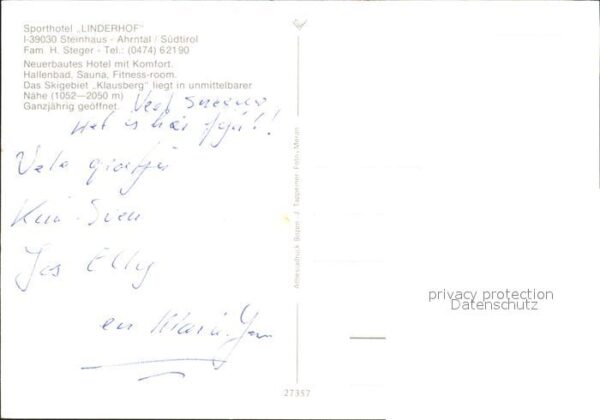 Sporthotel „LINDERHOF"
I-39030 Steinhaus - Ahrntal / Südtirol
Fam. H. Steger - Tel.: (0474) 62190
Neuerbautes Hotel mit Komfort.
Hallenbad, Sauna, Fitness-room.
Das Skigebiet „Klausberg" liegt in unmittelbarer
Nähe (1052—2050 m)
Ganzjährig geöffnet.
Veel
Het is hier fijn!!
Vele
Sven
Jos Elly
en
Athesiadruck Bozen - J. Tappeiner Foto, Meran
27357
privacy protection
Datenschutz